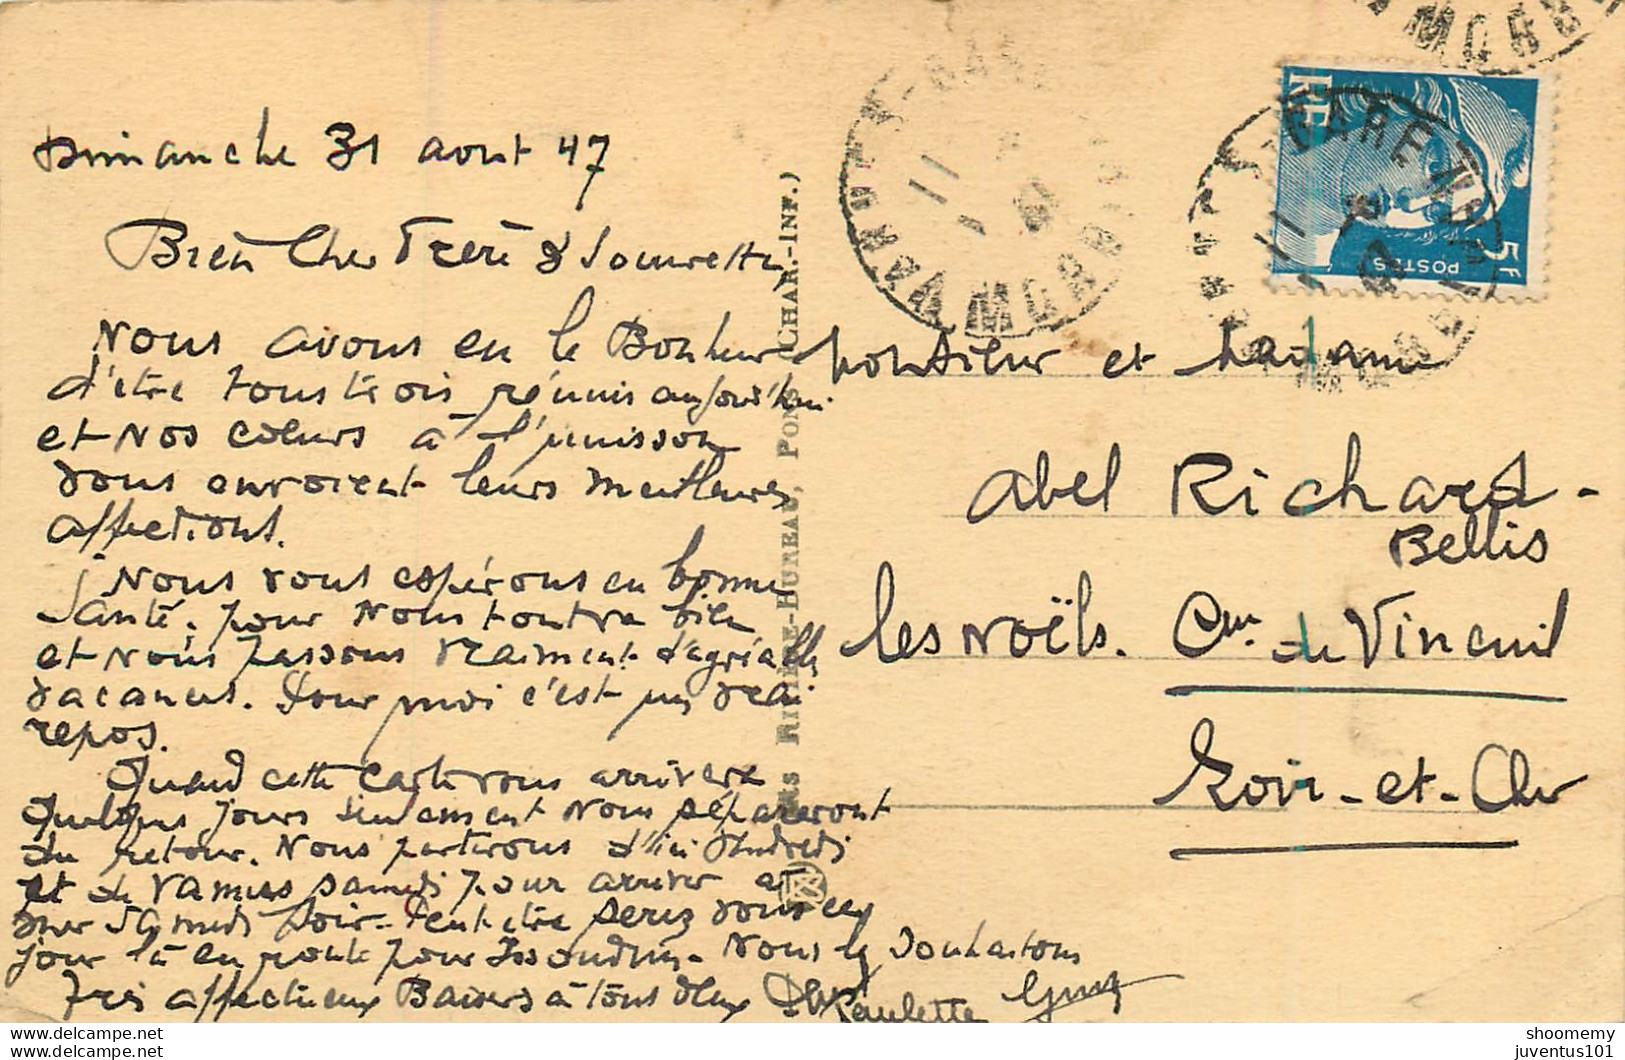 Dimanche 31 aout 47
Bien Cher Frère & Soeurette
Nous avons eu le Bonheur
d'être tous trois réunis aujourd'hui
et nos coeurs à l'unisson
vous envoient leurs meilleures
affections.
Nous vous espérons en bonne
Santé, pour nous tout va bien
et nous passons vraiment d'agréables
vacances. Pour moi c'est un vrai
repos.
Quand cette carte vous arrivera
quelques jours seulement nous sépareront
du retour. Nous partirons d'ici Vendredi
et de Vannes samedi pour arriver à
Mer Samedi soir. Peut être serez vous ce
jour là en route pour Issoudun. Nous le souhaitons
Très affectueux Baisers à tous deux
Paulette
Monsieur et Madame
Abel Richard-
Bellis
les Noëls. Cne de Vineuil
Loir-et-Cher
RIVIÈRE-BUREAU, PONS (CHAR.-INF.)
VANNES-GARE
MORBIHAN
VANNES-GARE
MORBIHAN
MORB
RF
5F
POSTES
shoomemy
juventus101